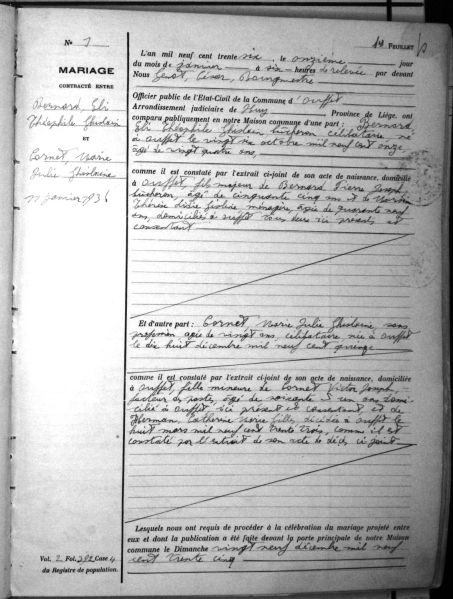 N° 1
MARIAGE
CONTRACTÉ ENTRE
Bernard Eli
Théophile Ghislain
ET
Cornet, Marie
Julie Ghislaine
11 janvier 1936
Vol. 2 Fol. 392 Case 4
du Registre de population.
FEUILLET
L'an mil neuf cent trente six, le onzième jour
du mois de janvier à six heures de relevée par devant
Nous César, Bourgmestre
Officier public de l'Etat-Civil de la Commune d'Ouffet
Arrondissement judiciaire de Huy, Province de Liége, ont
comparu publiquement en notre Maison commune d'une part : Bernard,
Eli Théophile Ghislain bûcheron célibataire né
à Ouffet le vingt octobre mil neuf cent onze,
âgé de vingt quatre ans,
comme il est constaté par l'extrait ci-joint de son acte de naissance, domicilié
à Ouffet, fils majeur de Bernard Pierre Joseph
bûcheron, âgé de cinquante cinq ans et de
Thérèse ménagère, âgée de quarante neuf
ans, domiciliés à Ouffet tous deux ici présents et
consentant
Et d'autre part : Cornet, Marie Julie Ghislaine, sans
profession âgée de vingt ans, célibataire, née à Ouffet
le dix huit décembre mil neuf cent quinze
comme il est constaté par l'extrait ci-joint de son acte de naissance, domiciliée
à Ouffet, fille mineure de Cornet Victor Joseph
facteur des postes, âgé de soixante et un ans, domi-
cilié à Ouffet ici présent et consentant, et de
Herman, Catherine Marie décédée à Ouffet le
huit mars mil neuf cent trente trois, comme il est
constaté par l'extrait de son acte de décès ci joint
Lesquels nous ont requis de procéder à la célébration du mariage projeté entre
eux et dont la publication a été faite devant la porte principale de notre Maison
commune le Dimanche vingt neuf décembre mil neuf
cent trente cinq